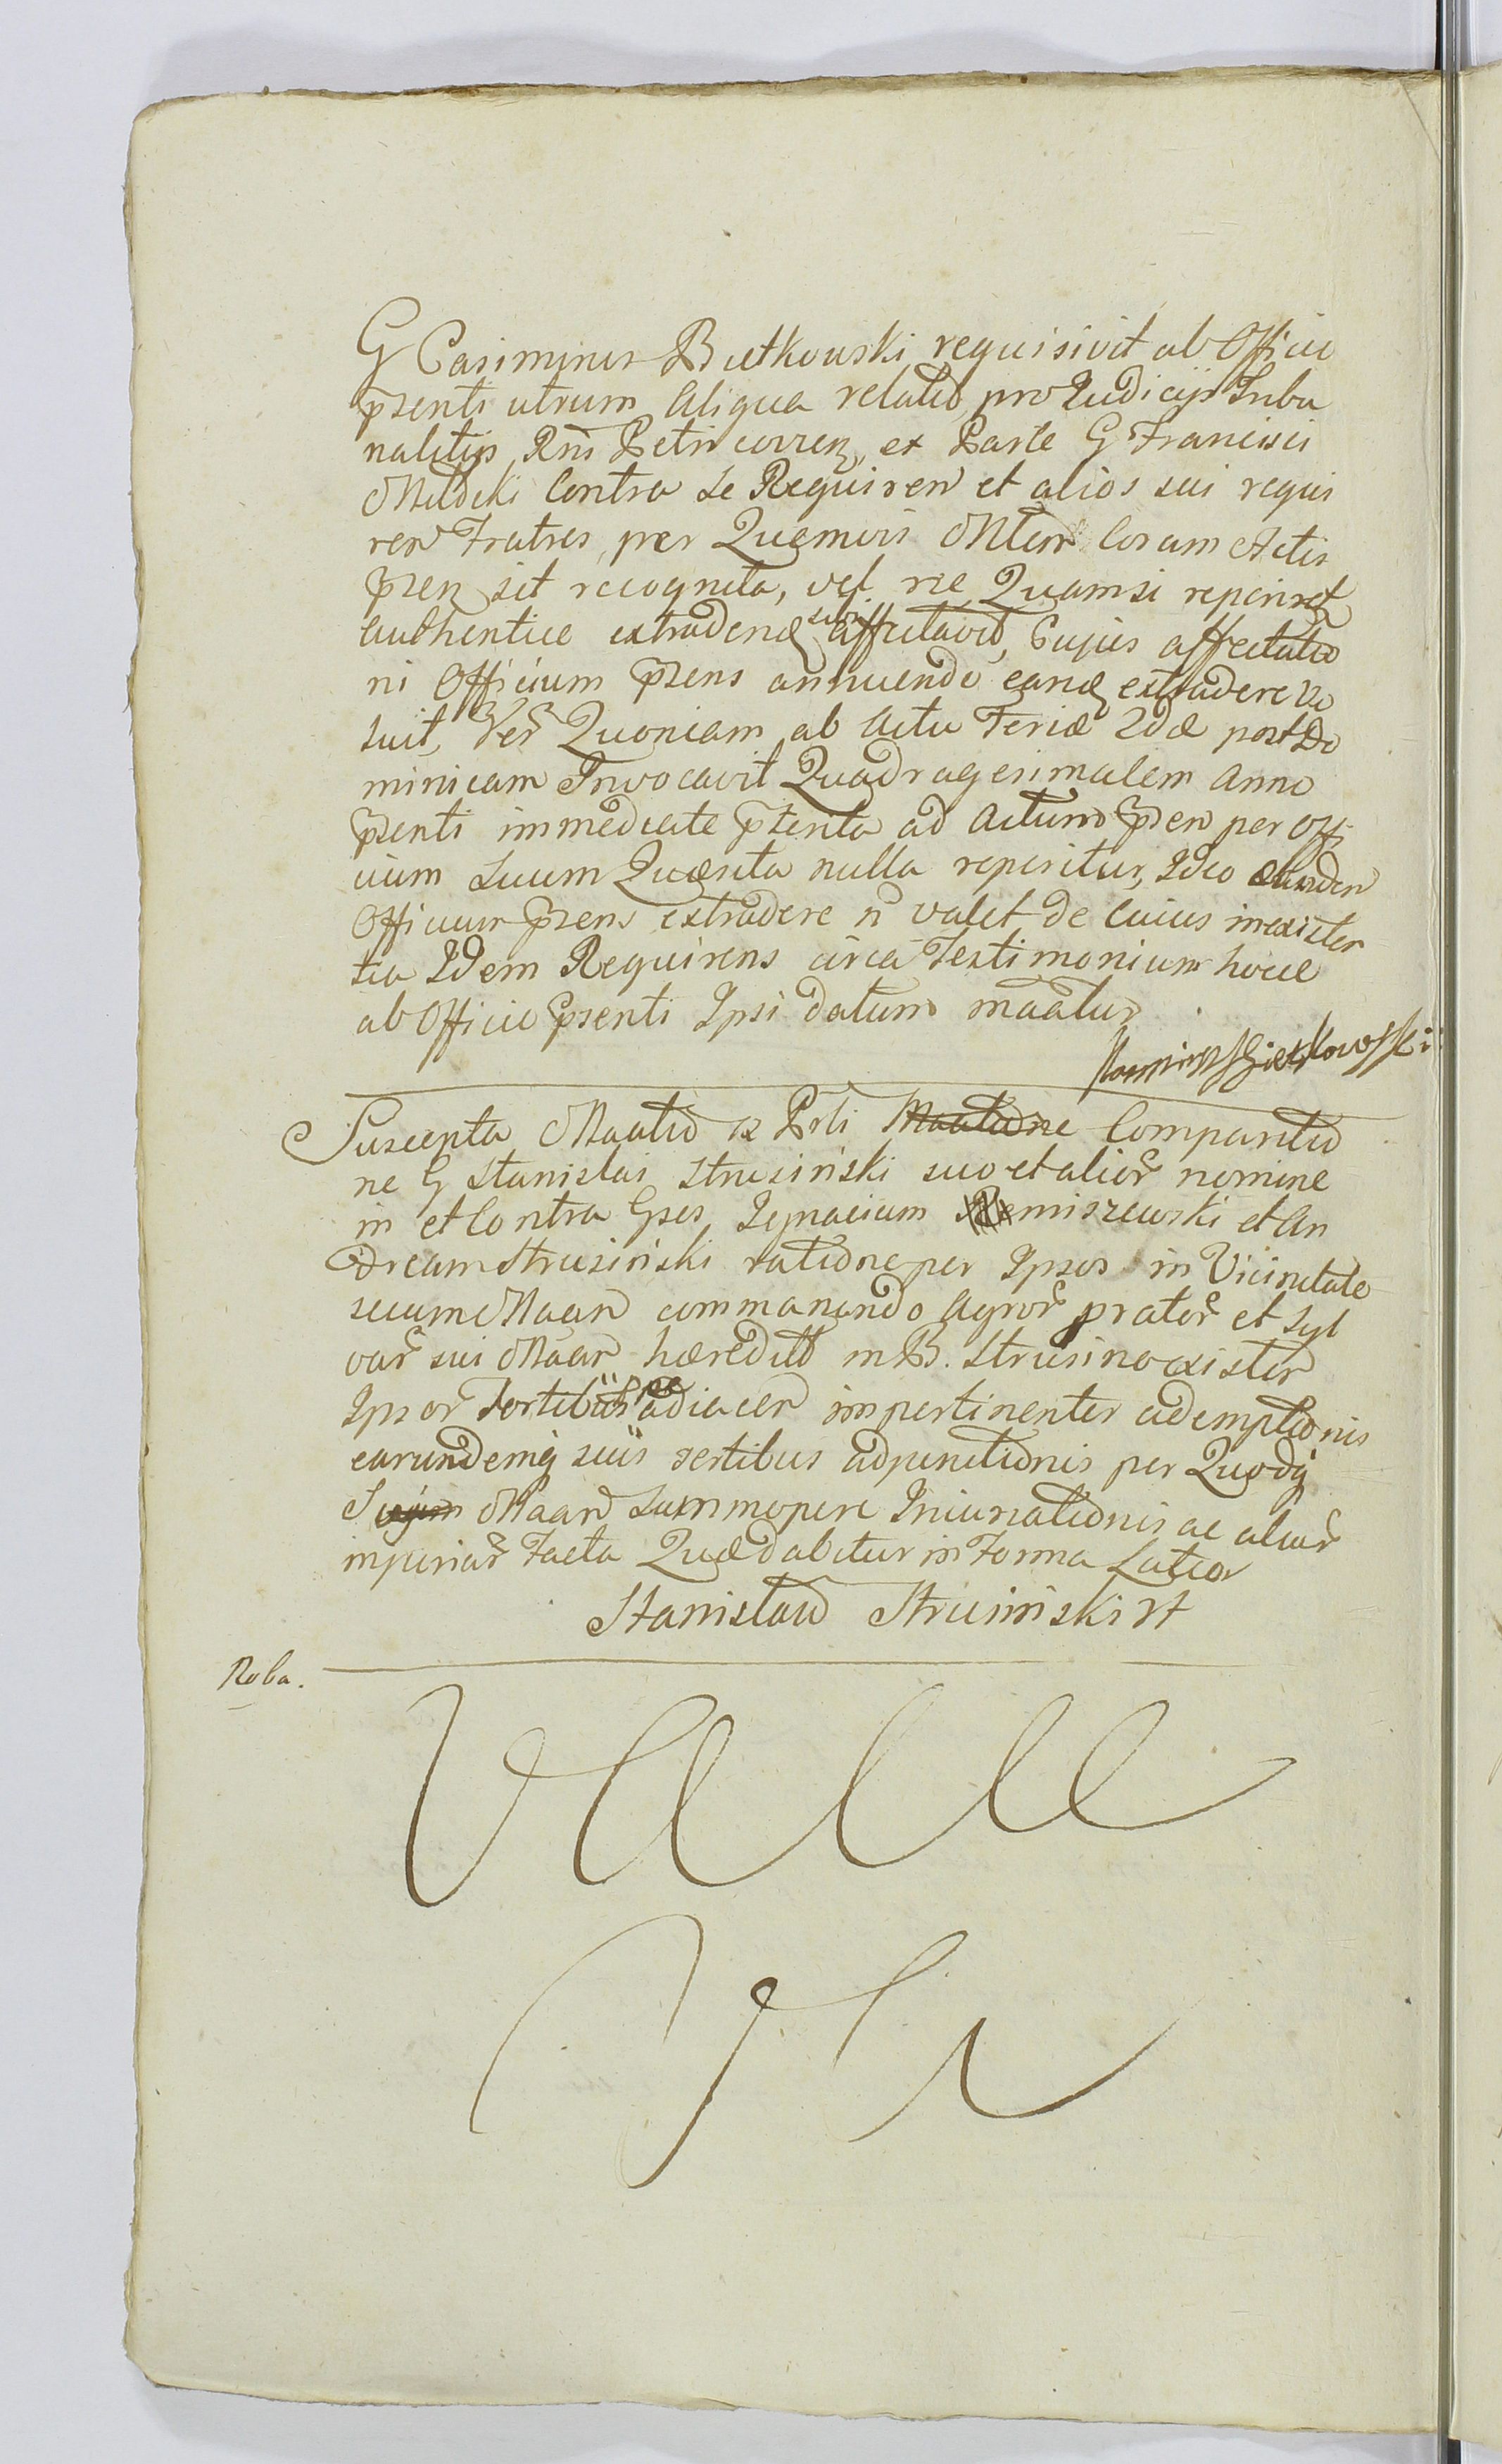 G Casimirus Butkowski requisivit ab Officio
prsenti utrum aliqua relatio pro Iudicijs Tribu
nalitijs Rni Petri curren, ex Parte G Francisci
Mildcki Contra se Requiren et alios sui requi
ren Fratres, per Quemvis Mtem Coram Actis
prsen sit recognita, vel ne Quam si reperiret
authentice extraden sibi affectavit, Cujus affectatio
ni Officium prsens annuendo eand extradere vo
luit, Ver Quoniam ab actu Feriæ 2dæ post Do
minicam Invocavit Quadragesimalem Anno
prsenti immediate prterita ad actum prsen per Offi
cium suum Quæsita nulla reperitur, Ideo eandem
Officium prsens extradere n valet de Cuius inexisten
tia Idem Requirens circa Testimonium hocce
ab Officio prsenti Ipsi datum maatur
Suscepta Maatio ex Prti Maatione Comparitio
ne G Stanislai Strusiński suo et alior nomine
in et Contra Gsos Ignacium Remiszewski et An
dream Strusiński ratione per Ipsos in Vicinitate
secum Maan commanando Agror prator et Syl
var sui Maan hæredit in B. Strusino existen
Ipsor Sortibus adiacen impertinenter ademptionis
earundemq suis sortibus adjunctionis per Quodq
Maan Summopere Iniuriationis ac aliar
injuriar Facta Quæ dabitur in Forma Latior
Stanisław Strusiński
Roba.